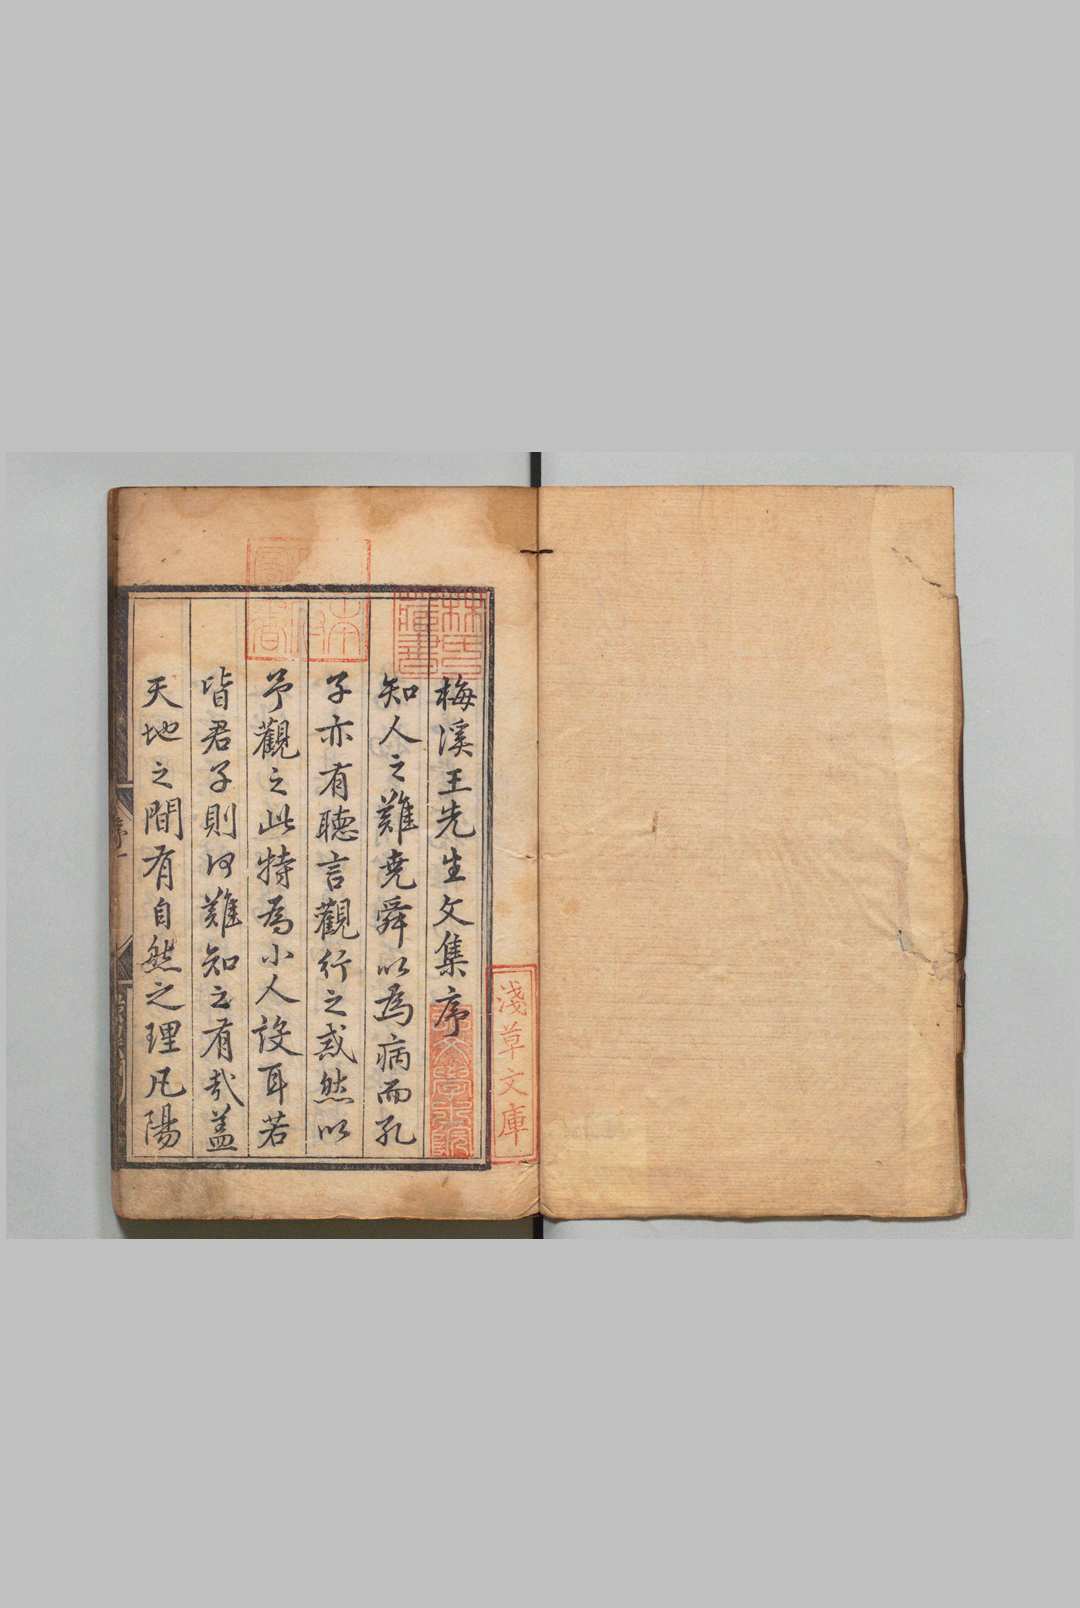 梅溪王先生文集序
知人之難堯舜以為病而孔
子亦有聽言觀行之戒然以
予觀之此特為小人設耳若
皆君子則何難知之有哉蓋
天地之間有自然之理凡陽
林氏
藏書
淺草文庫